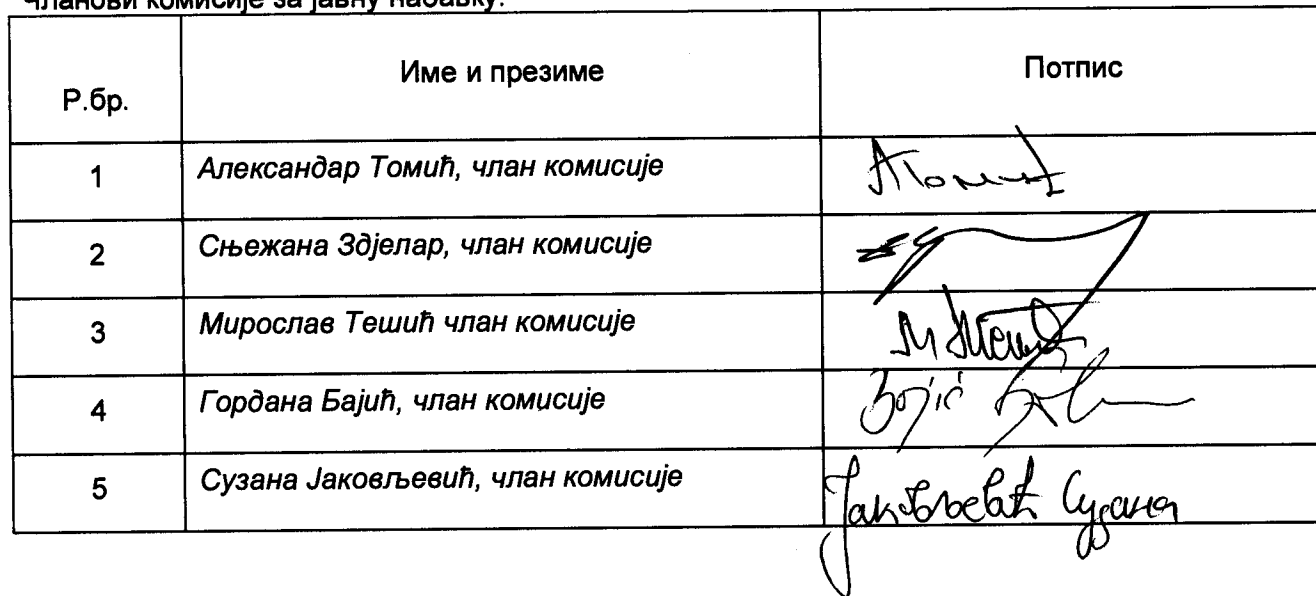 Чланови комисије за јавну набавку:
Р.бр. Име и презиме Потпис
1 Александар Томић, члан комисије А Томић
2 Сњежана Здјелар, члан комисије
3 Мирослав Тешић члан комисије М Тешић
4 Гордана Бајић, члан комисије Bajić
5 Сузана Јаковљевић, члан комисије Јаковљевић Сузана